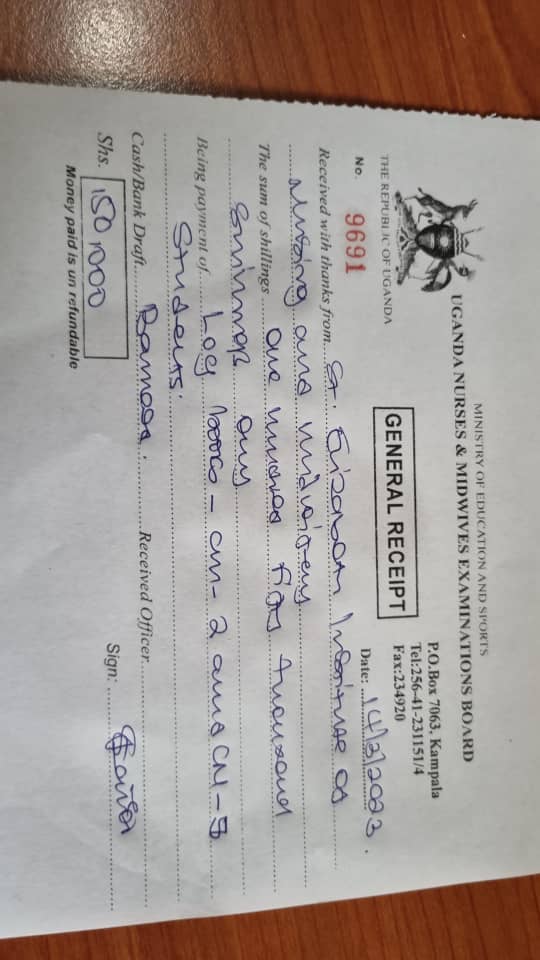 MINISTRY OF EDUCATION AND SPORTS
UGANDA NURSES & MIDWIVES EXAMINATIONS BOARD
P.O.Box 7063, Kampala
Tel:256-41-231151/4
Fax:234920
THE REPUBLIC OF UGANDA
GENERAL RECEIPT
No. 9691
Date: 14/3/2023
Received with thanks from St. Elizabeth Institute of
Nursing and midwifery
The sum of shillings one hundred fifty thousand
shillings only
Being payment of Log books - cm- 2 and CN-5
Students.
Cash/Bank Draft Banked. Received Officer
Shs. 150,000
Sign:
Money paid is un refundable